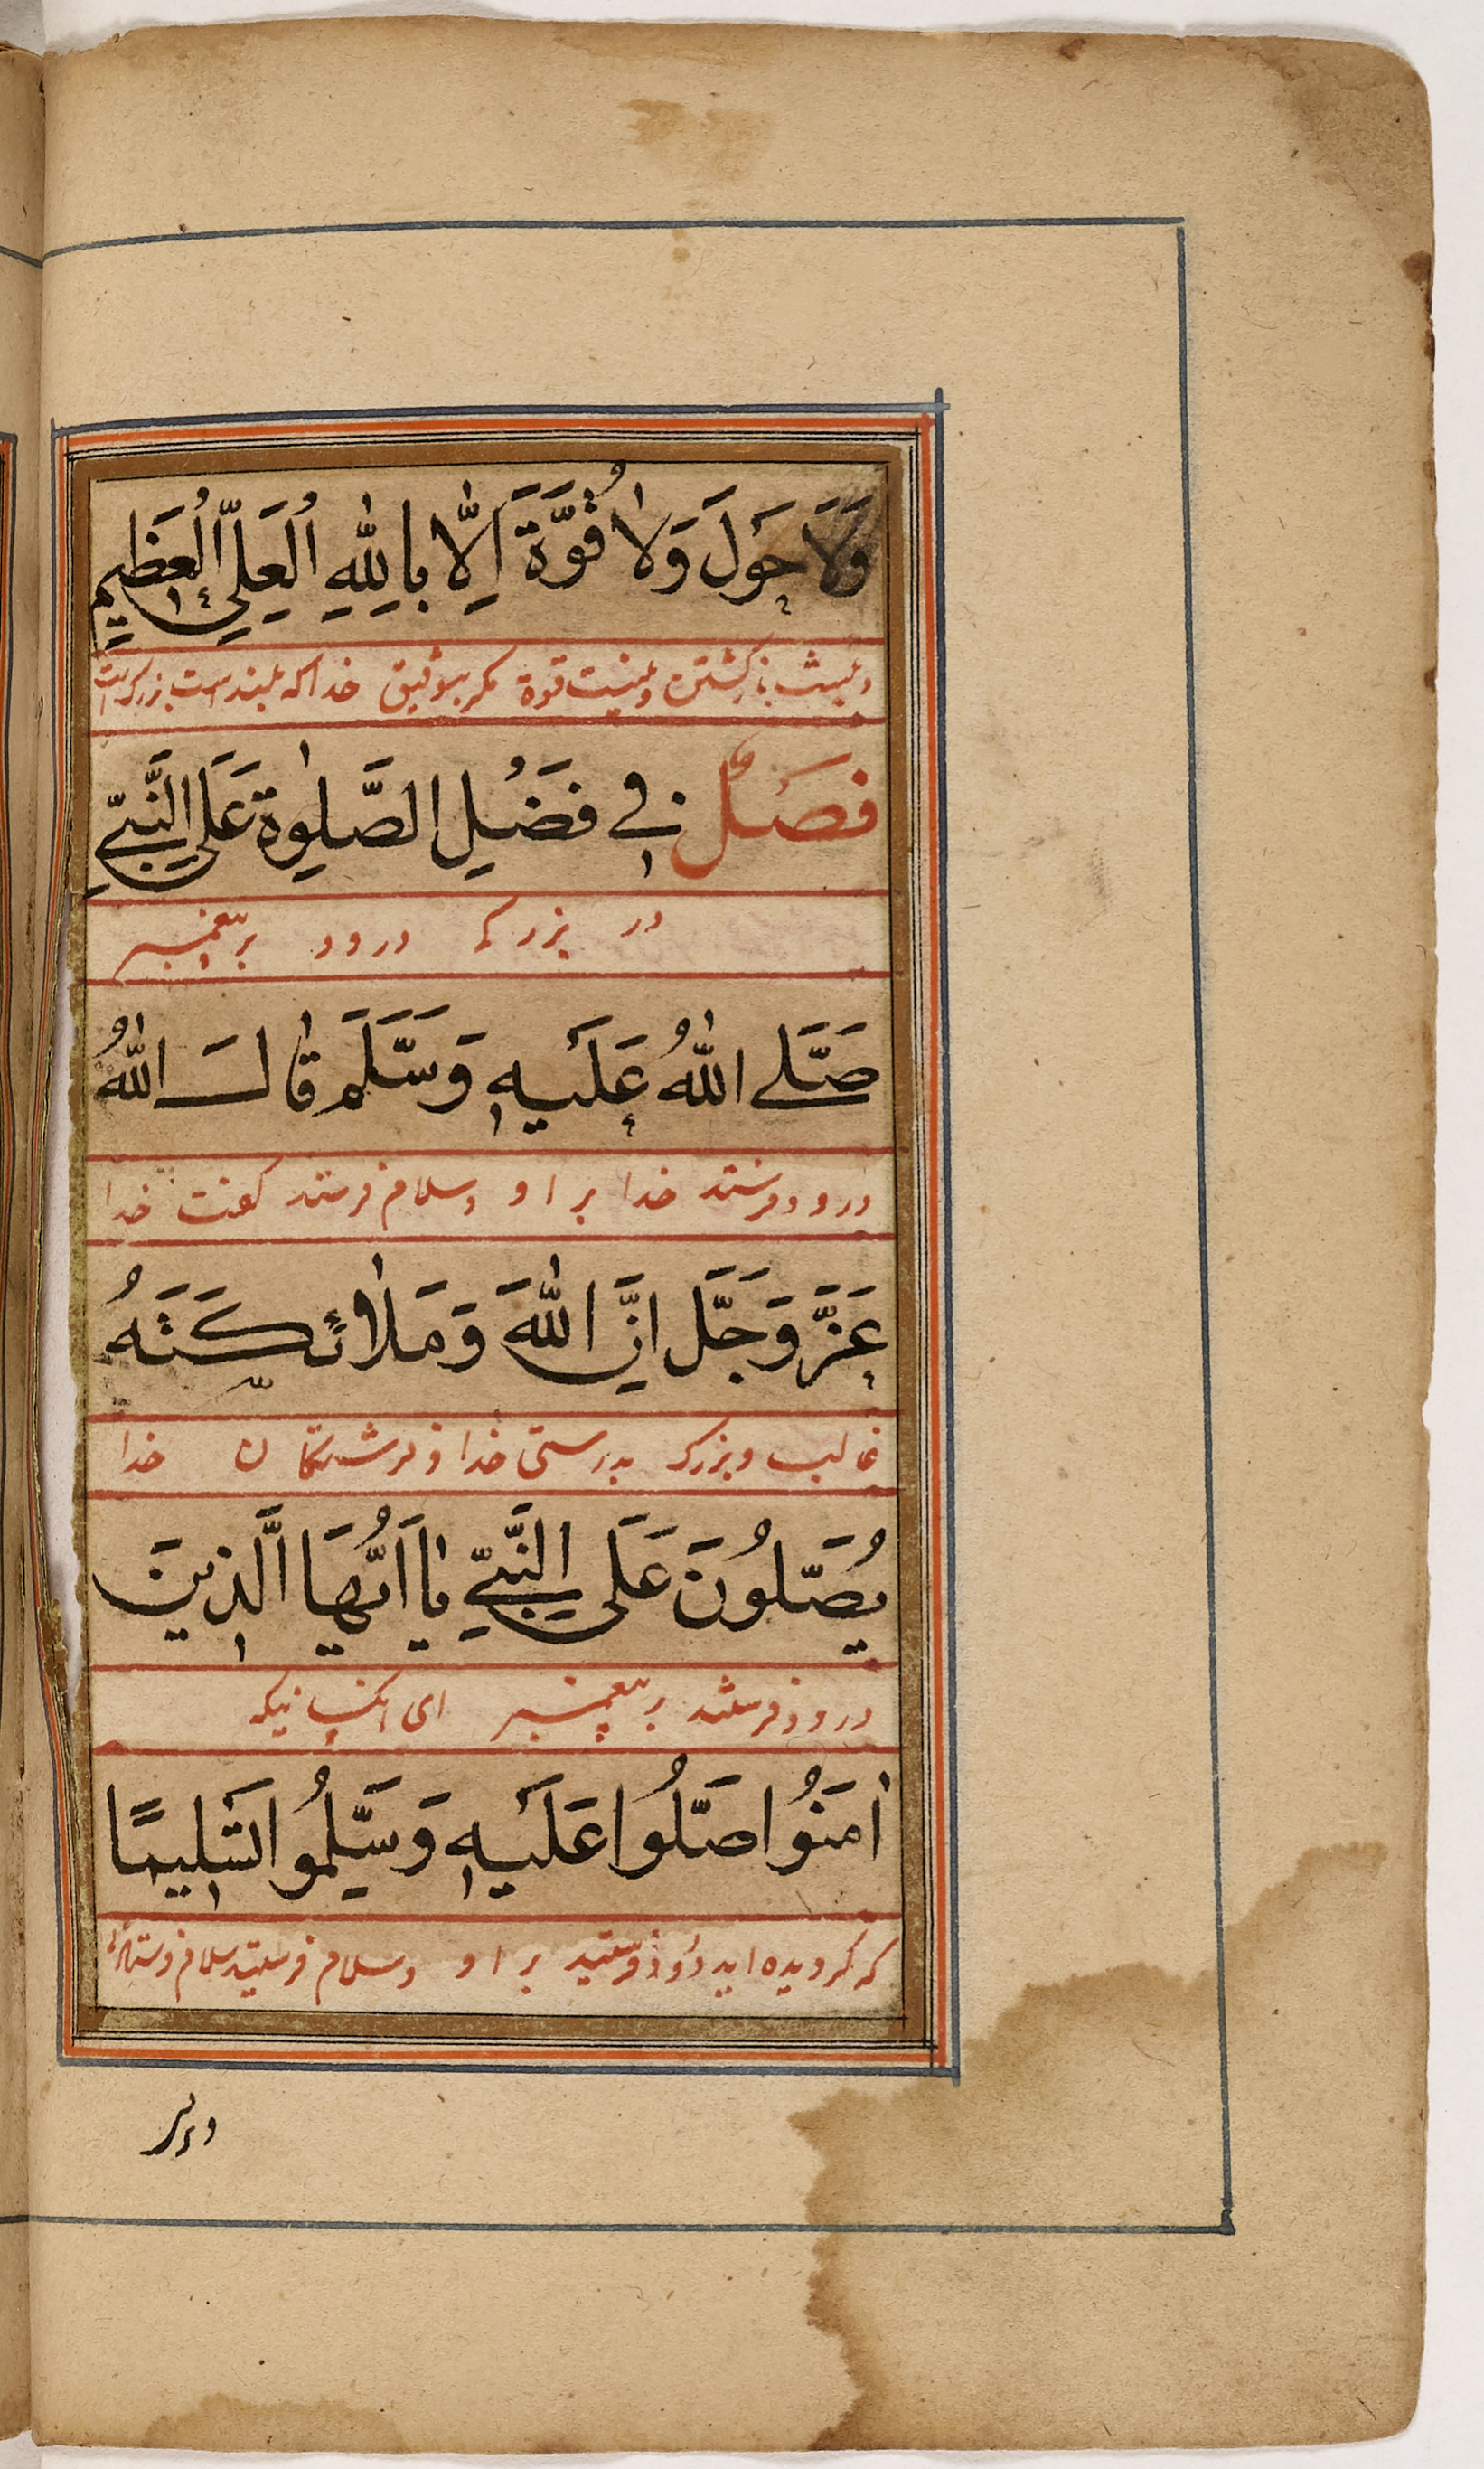 وَلَا حَوْلَ وَلَا قُوَّةَ اِلَّا بِاللّٰهِ الْعَلِيِّ الْعَظِيمِ
ونیست بازکشتن ونیست قوة مکر بتوفیق خدا که بلند است بزرک است
فَصْلٌ فِي فَضْلِ الصَّلٰوةِ عَلَى النَّبِيِّ
در بزرکی درود بر پیغمبر
صَلَّى اللّٰهُ عَلَيْهِ وَسَلَّمَ قَالَ اللّٰهُ
درود فرستد خدا بر او وسلام فرستد کفت خدا
عَزَّ وَجَلَّ اِنَّ اللّٰهَ وَمَلٰائِكَتَهُ
غالب وبزرک بدرستی خدا و فرشتکان خدا
يُصَلُّونَ عَلَى النَّبِيِّ يَا اَيُّهَا الَّذِينَ
درود فرستند بر پیغمبر ای آنکسانیکه
اٰمَنُوا صَلُّوا عَلَيْهِ وَسَلِّمُوا تَسْلِيمًا
که کرویده اید درود فرستید بر او وسلام فرستید سلام فرستادن